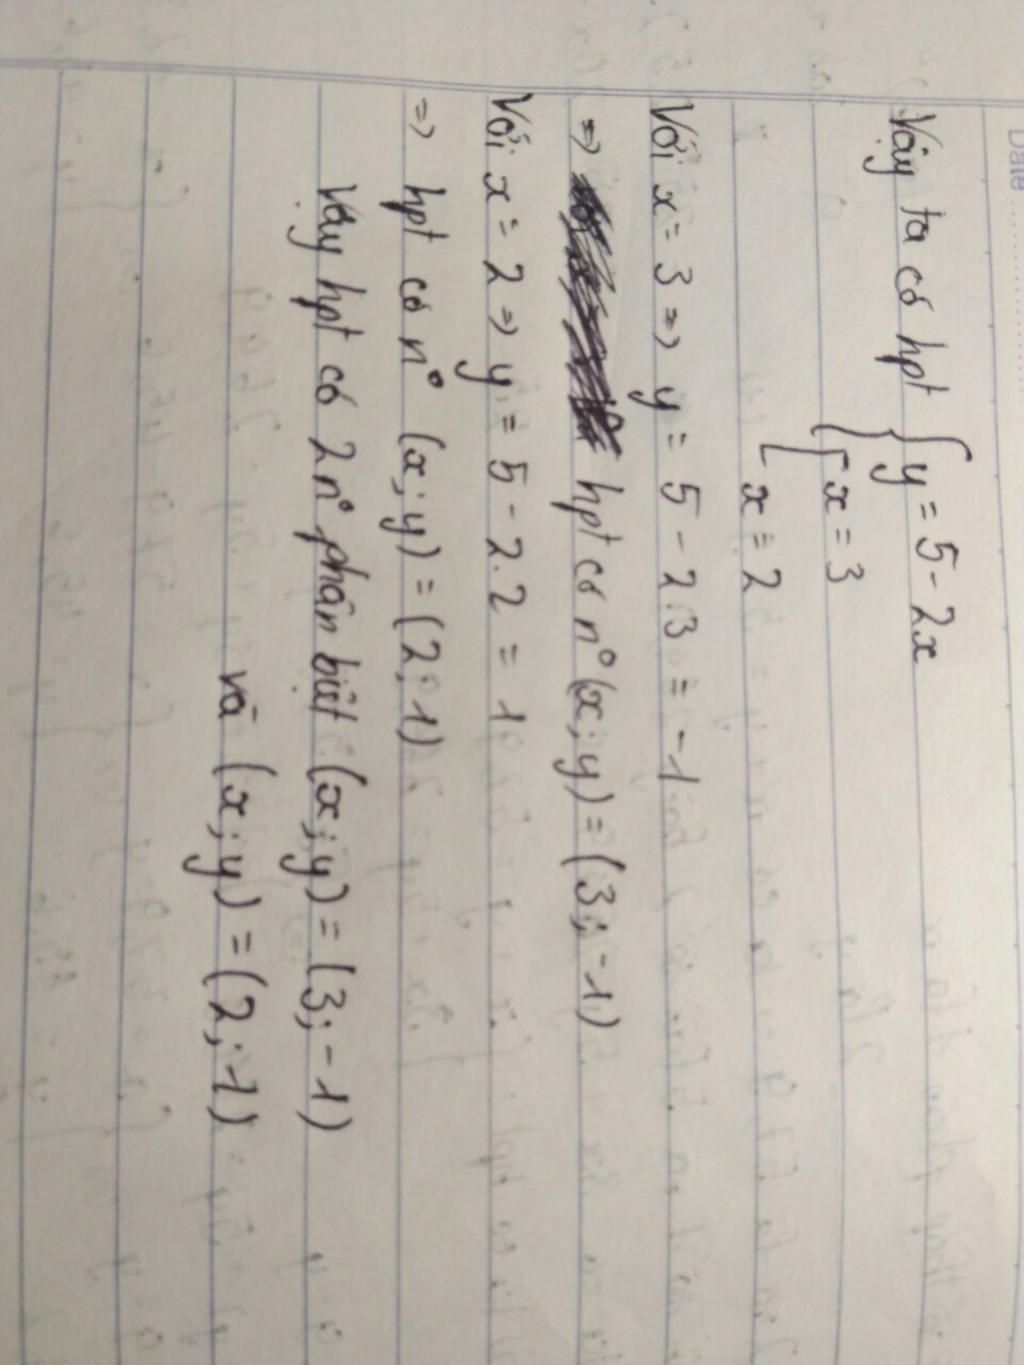 Date
Vậy ta có hpt { y = 5 - 2x
[ x = 3
x = 2
Với x = 3 => y = 5 - 2.3 = -1
=> hpt có n° (x; y) = (3; -1)
Với x = 2 => y = 5 - 2.2 = 1
=> hpt có n° (x; y) = (2; 1)
Vậy hpt có 2 n° phân biệt (x; y) = (3; -1)
và (x; y) = (2; 1)